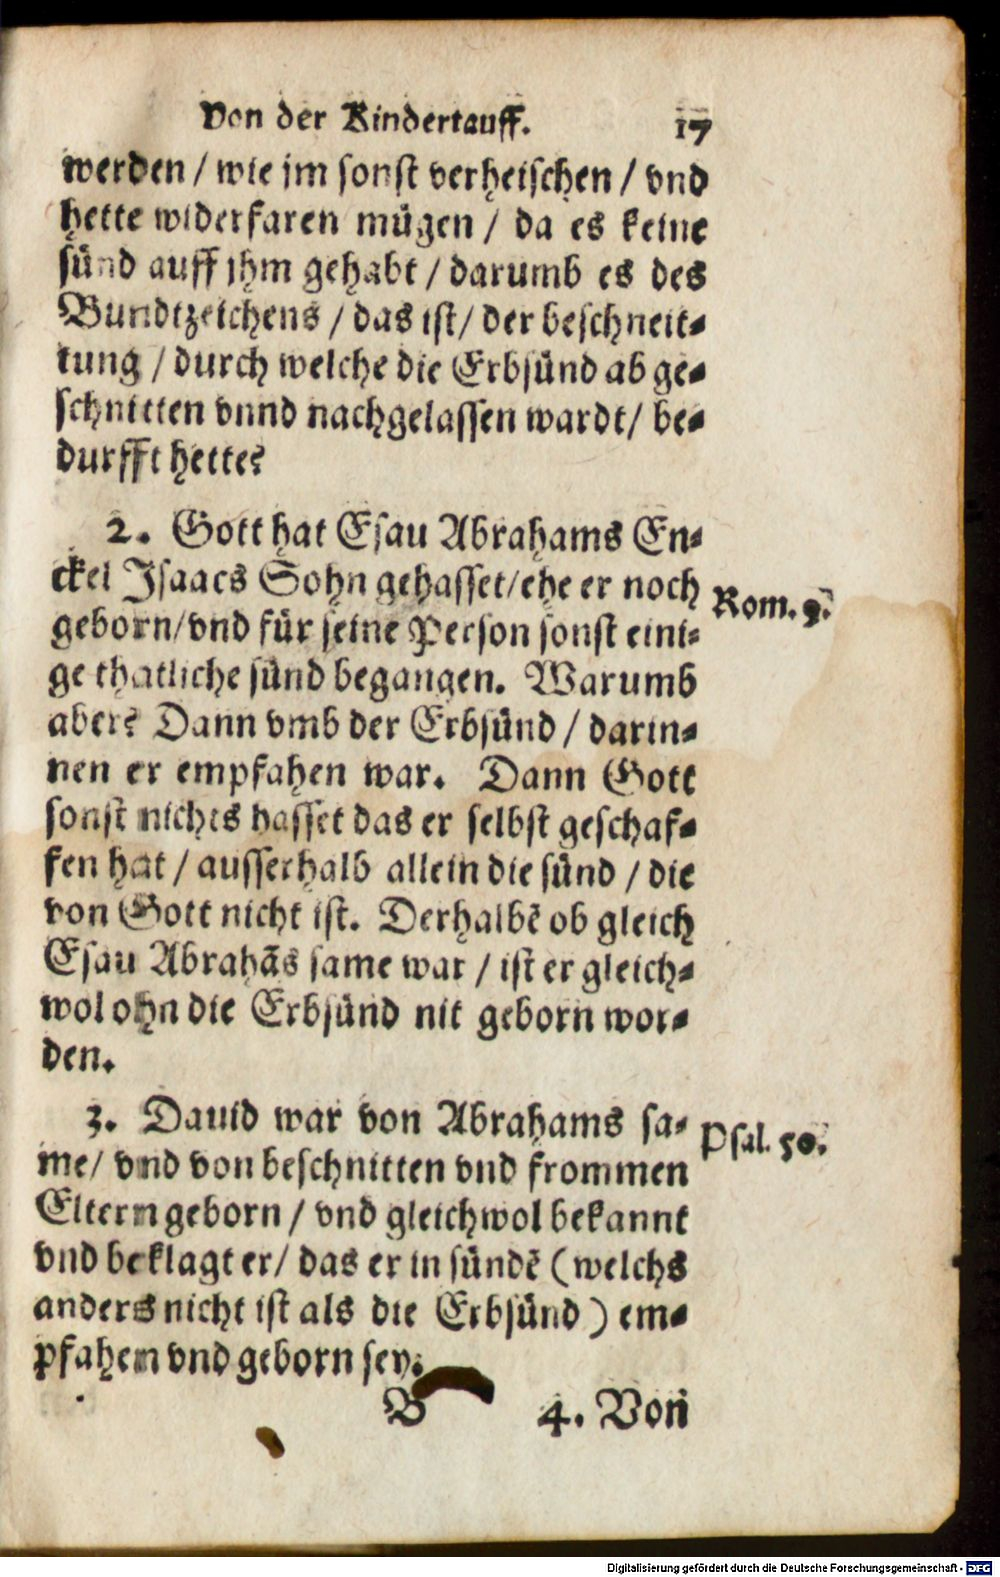 Von der Kindertauff. 17
werden / wie jm sonst verheischen / vnd
hette widerfaren mügen / da es keine
sünd auff jhm gehabt / darumb es des
Bundtzeichens / das ist / der beschneit-
tung / durch welche die Erbsünd abge-
schnitten vnnd nachgelassen wardt / be-
durfft hette?
2. Gott hat Esau Abrahams En-
ckel Isaacs Sohn gehasset / ehe er noch
Rom. 9.
geborn / vnd für seine Person sonst eini-
ge thatliche sünd begangen. Warumb
aber? Dann vmb der Erbsünd / darin-
nen er empfahen war. Dann Gott
sonst nichts hasset das er selbst geschaf-
fen hat / ausserhalb allein die sünd / die
von Gott nicht ist. Derhalbē ob gleich
Esau Abrahãs same war / ist er gleich-
wol ohn die Erbsünd nit geborn wor-
den.
3. Dauid war von Abrahams sa-
Psal. 50.
me / vnd von beschnitten vnd frommen
Eltern geborn / vnd gleichwol bekannt
vnd beklagt er / das er in sündē (welchs
anders nicht ist als die Erbsünd) em-
pfahen vnd geborn sey.
B 4. Von
Digitalisierung gefördert durch die Deutsche Forschungsgemeinschaft - DFG